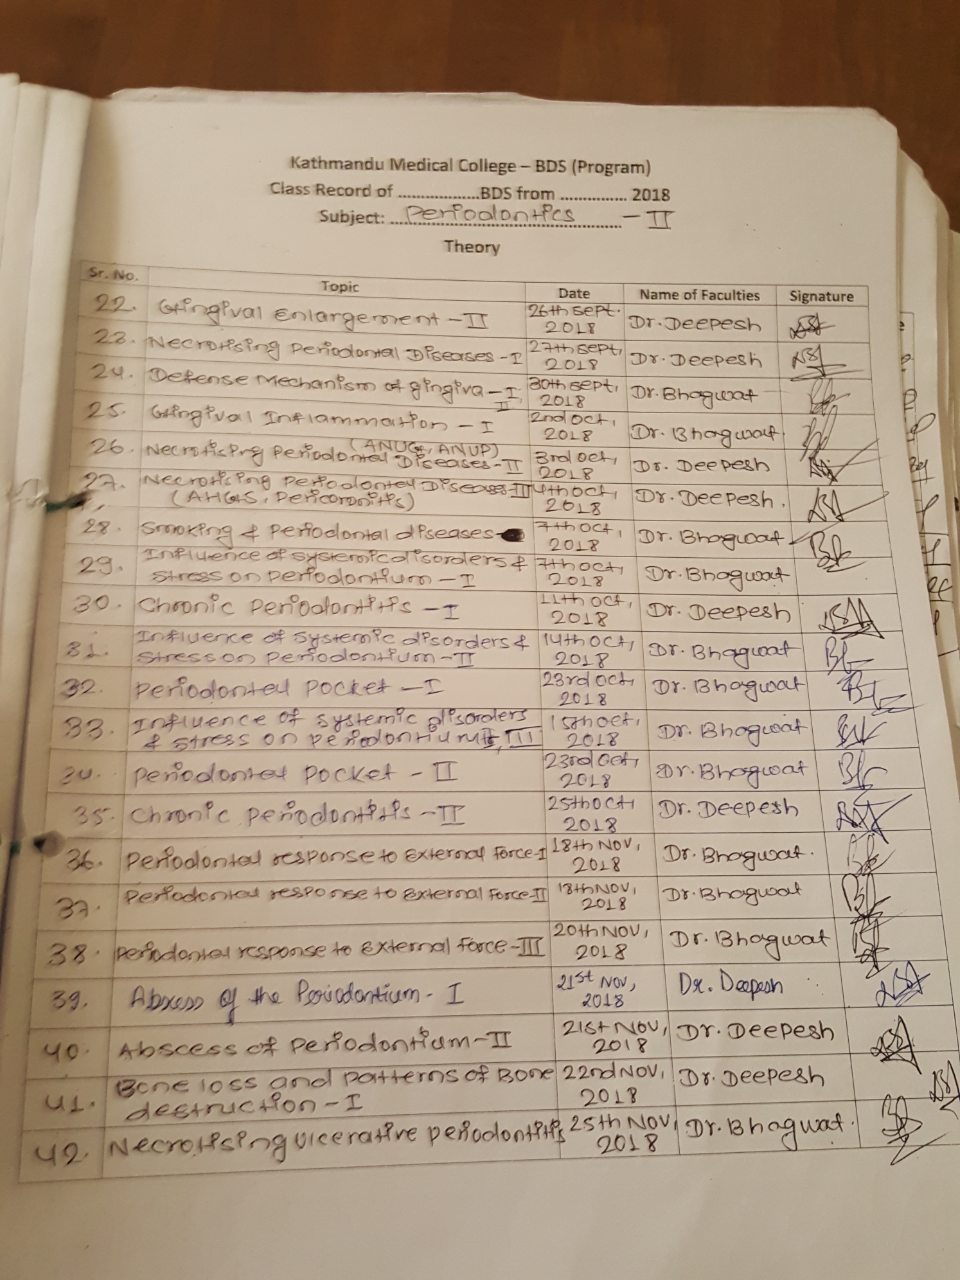 Kathmandu Medical College – BDS (Program)
Class Record of ..................BDS from ............... 2018
Subject: Periodontics - II
Theory
Sr. No. Topic Date Name of Faculties Signature
22. Gingival Enlargement - II 26th Sept. 2018 Dr. Deepesh
23. Necrotising Periodontal Diseases - I 27th Sept, 2018 Dr. Deepesh
24. Defense Mechanism of gingiva - I, II 30th Sept, 2018 Dr. Bhagwat
25. Gingival Inflammation - I 2nd Oct, 2018 Dr. Bhagwat
26. Necrotising Periodontal Diseases - II (ANUG, ANUP) 3rd Oct, 2018 Dr. Deepesh
27. Necrotising Periodontal Diseases III 4th Oct, 2018 Dr. Deepesh.
(AHGS, Pericoronitis)
28. Smoking & Periodontal diseases- 7th Oct, 2018 Dr. Bhagwat
29. Influence of systemic disorders & 7th Oct, 2018 Dr. Bhagwat
stress on Periodontium - I
30. Chronic Periodontitis - I 11th Oct, 2018 Dr. Deepesh
31. Influence of systemic disorders & 14th Oct, 2018 Dr. Bhagwat
stress on Periodontium - II
32. Periodontal Pocket - I 23rd Oct, 2018 Dr. Bhagwat
33. Influence of systemic disorders 15th Oct, 2018 Dr. Bhagwat
& stress on Periodontium II, III
34. Periodontal Pocket - II 23rd Oct, 2018 Dr. Bhagwat
35. Chronic Periodontitis - II 25th Oct, 2018 Dr. Deepesh
36. Periodontal response to External Force - I 18th Nov, 2018 Dr. Bhagwat.
37. Periodontal response to External Force - II 18th Nov, 2018 Dr. Bhagwat
38. Periodontal response to External force - III 20th Nov, 2018 Dr. Bhagwat
39. Abscess of the Periodontium - I 21st Nov, 2018 Dr. Deepesh
40. Abscess of Periodontium - II 21st Nov, 2018 Dr. Deepesh
41. Bone loss and patterns of Bone 22nd Nov, 2018 Dr. Deepesh
destruction - I
42. Necrotising ulcerative periodontitis 25th Nov, 2018 Dr. Bhagwat.